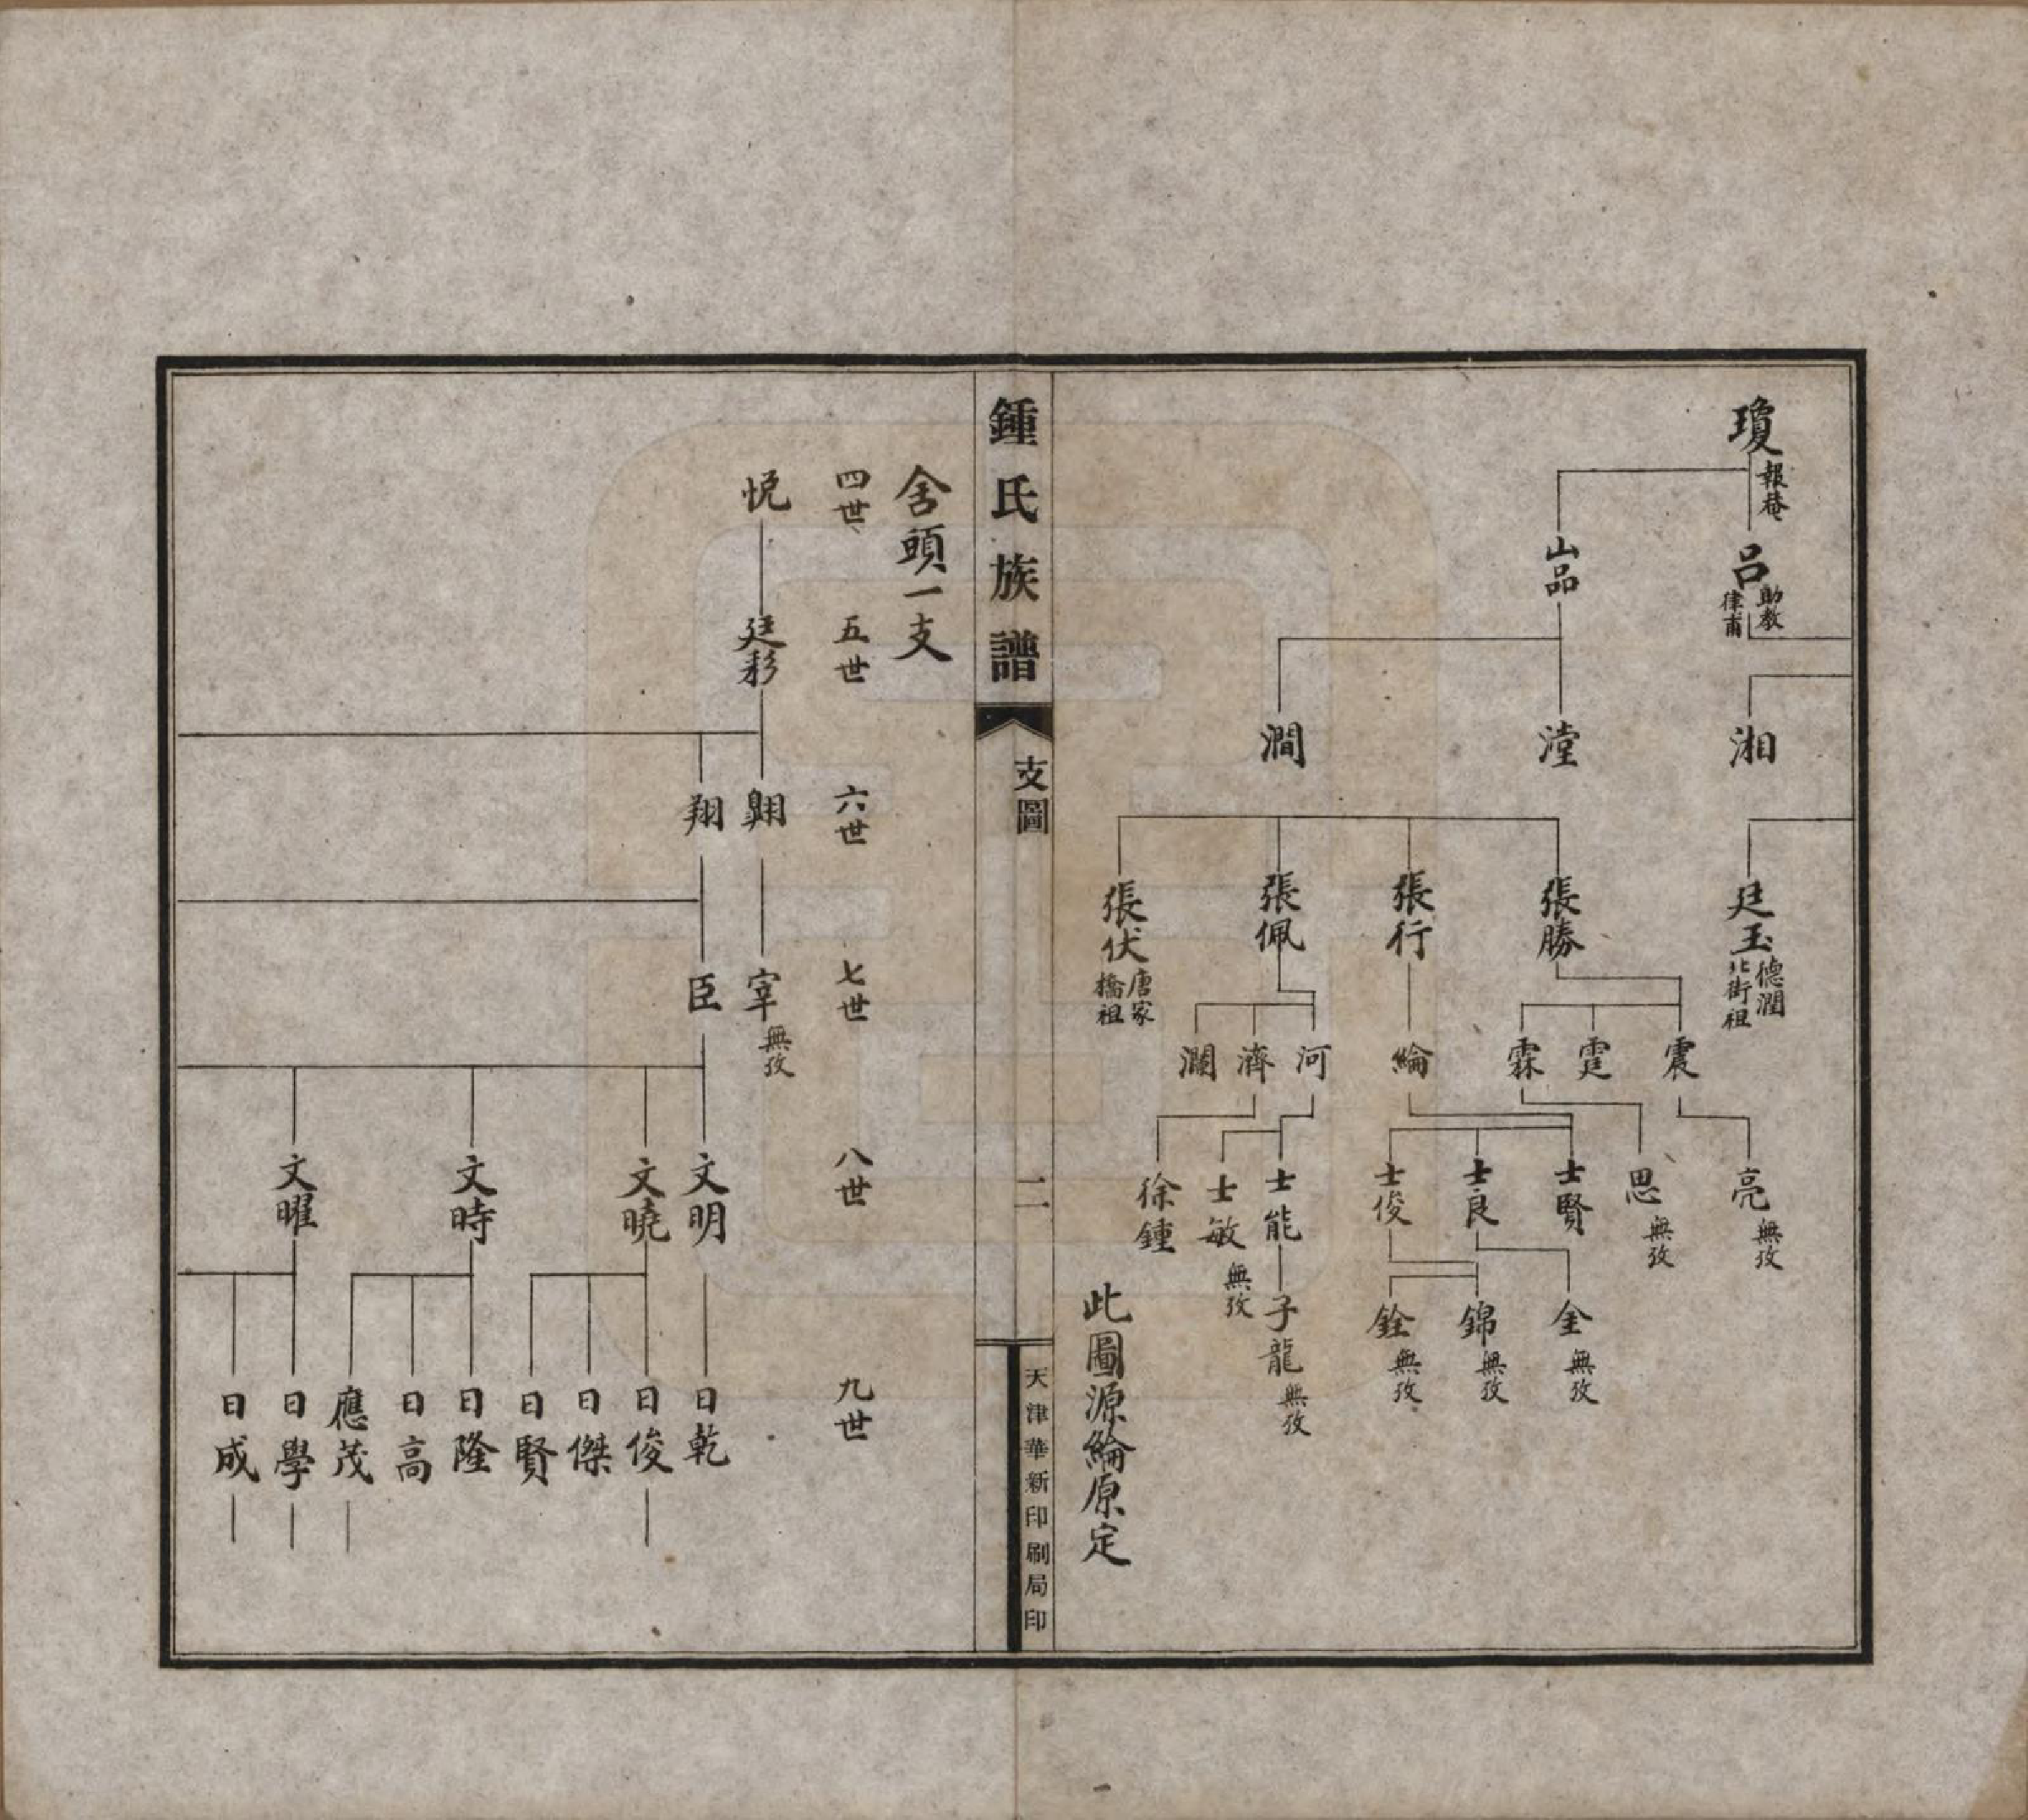 瓊
報菴
呂
助教
律甫
山品
湘
漟
澗
廷玉
德潤
北街祖
張勝
張行
張佩
張伏
唐家
橋祖
震
霆
霖
綸
河
濟
瀾
亮
無攷
思
無攷
士賢
士良
士俊
士能
士敏
無攷
徐鍾
金
無攷
錦
無攷
銓
無攷
子龍
無攷
此圖源綸原定
鍾氏族譜
支圖
二
天津華新印刷局印
舍頭一支
四世
五世
六世
七世
八世
九世
悦
廷彩
翱
翔
宰
無攷
臣
文明
文曉
文時
文曜
日乾
日俊
日傑
日賢
日隆
日高
應茂
日學
日成